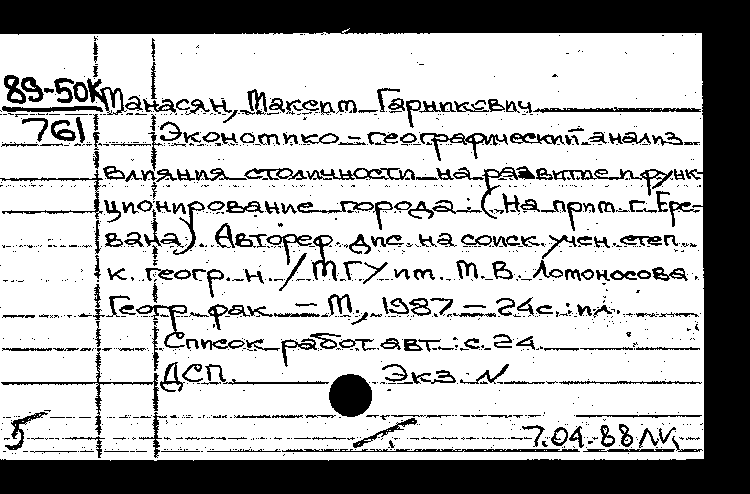 89-50К Манасян, Максим Гарникович
761 Экономико-географический анализ
влияния столичности на развитие и функ-
ционирование города: (На прим. г. Ере-
вана). Автореф. дис. на соиск. учен. степ.
к. геогр. н. / МГУ им. М. В. Ломоносова.
Геогр. фак. - М., 1987 - 24 с.: ил.
Список работ авт.: с. 24
ДСП. Экз. N
5 7.04.88